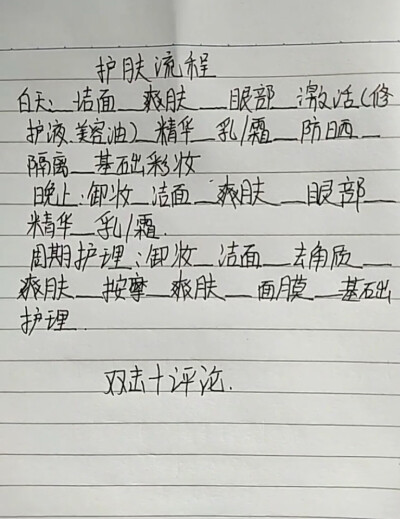 护肤流程
白天：洁面__爽肤__眼部__激活(修
护液、美容油)__精华__乳/霜__防晒__
隔离__基础彩妆
晚上：卸妆__洁面__爽肤__眼部__
精华__乳/霜.
周期护理：卸妆__洁面__去角质__
爽肤__按摩__爽肤__面膜__基础
护理.
双击+评论.